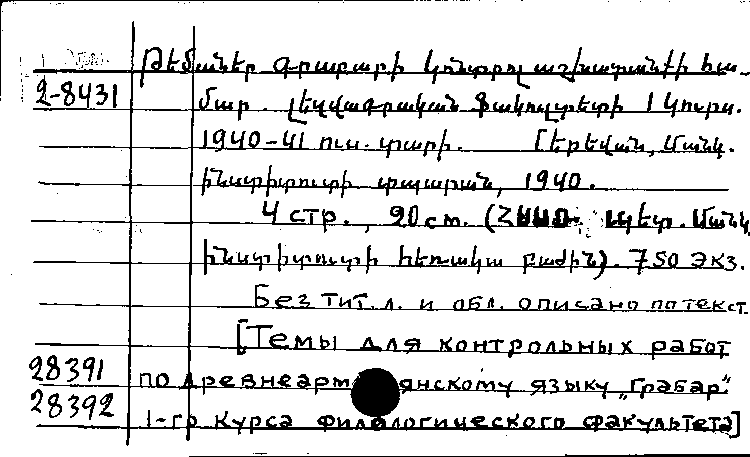 Թեմաներ գրաբարի կոնտրոլ աշխատանքի հա-
2-8431 մար. լեզվագրական ֆակուլտետի 1 կուրս.
1940-41 ուս. տարի. [Երեվան, Մանկ.
ինստիտուտի տպարան, 1940.
4 стр., 20 см. (ՀՍՍՌ. պետ. Մանկ.
ինստիտուտի հեռակա բաժին). 750 экз.
Без тит. л. и обл. описано по текст.
[Темы для контрольных работ
28391 по древнеарм янскому языку „Грабар"
28392 1-го курса филологического факультета]